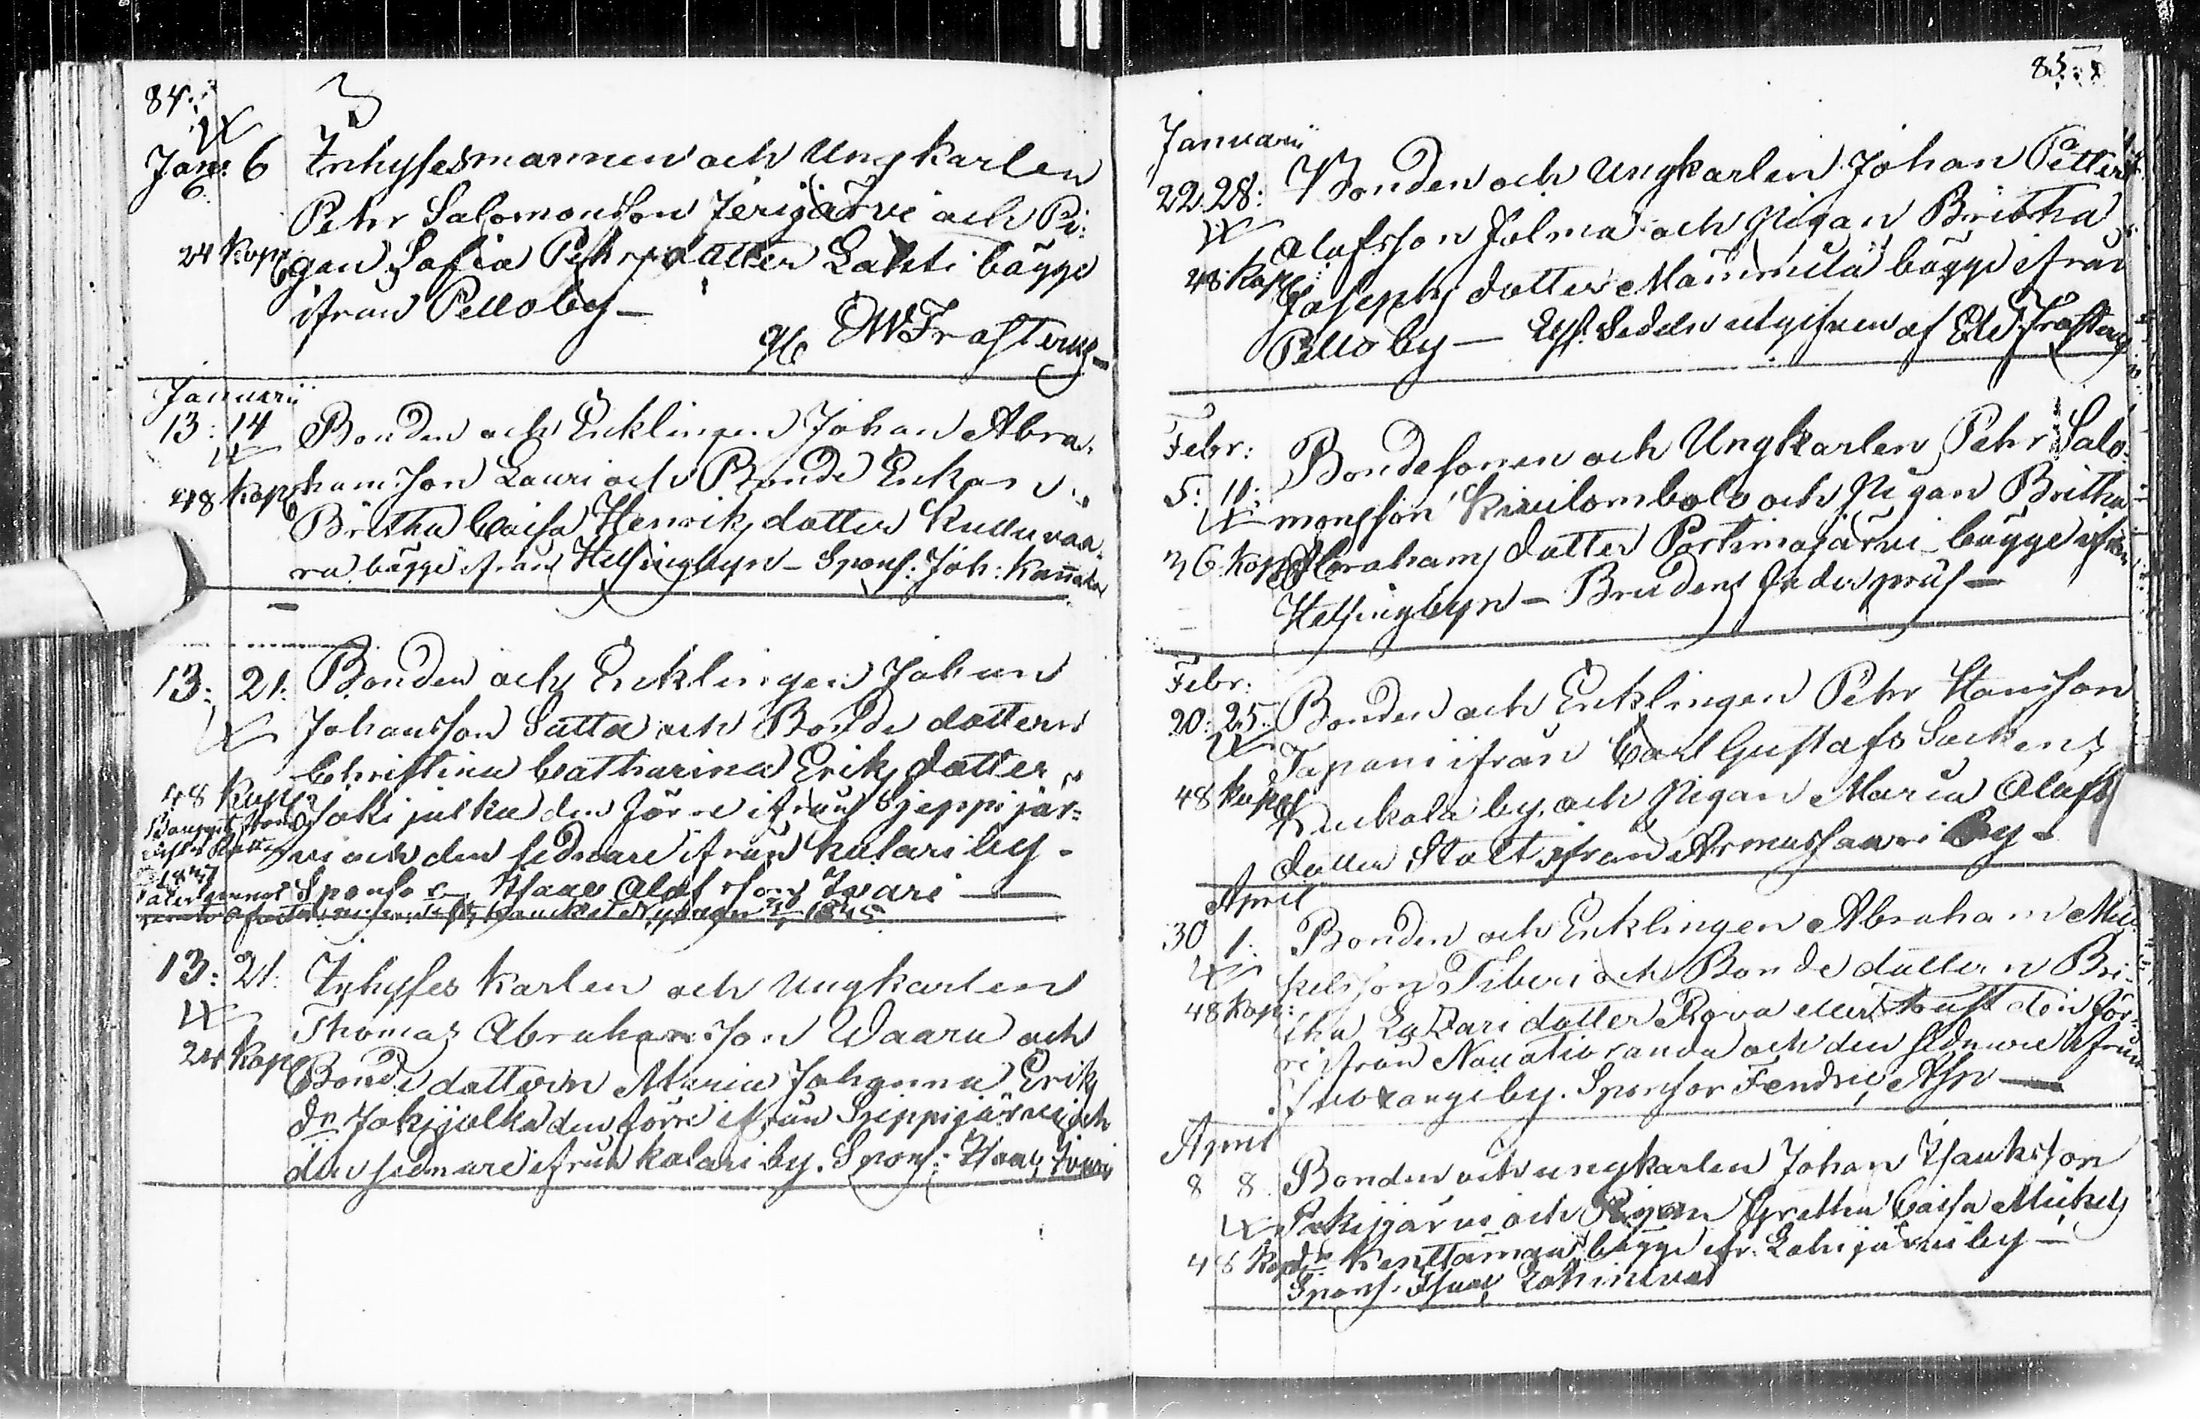 84.
Jan: 6 Inhysesmannen och Ungkarlen
6.
Pehr Salomonsson Jerijärvi och Pi-
24 kop gan Sofia Pehrsdotter Lahti bägge
ifrån Pello by —
EW Frosterus
Januarii
13: 14 Bonden och Enklingen Johan Abra-
48 kop hamsson Lauri och Bonde Enkan
Britha Caisa Henriks dotter Kulluvaa-
ra bägge ifrån Helsingbyn — Spons: Joh:
13: 21: Bonden och Enklingen Johan
Johansson Satta och Bonde dottern
Christina Catharina Eriks dotter
48 Kop Jokijalka den förre ifrån Sjeppijär-
vi och den sednare ifrån Kolari by -
1847
Sponsor Isaac Olofsson Ivari —
13: 21: Inhyses karlen och Ungkarlen
Thomas Abrahamsson Waara och
24 Kop Bonde dottern Maria Johanna Eriks
dr. Jokijalka den förre ifrån Sieppijärvi och
den sednare ifrån Kolari by. Spons:
85.
Januarii
22 28: Bonden och Ungkarlen Johan Petter
Olofsson Jolma och Pigan Britha
48 Kop: Josephs dotter Mämmilä bägge ifrån
Pello by — Lysn. Sedeln utgifven af
Febr:
5: 11: Bondesonen och Ungkarlen Pehr Salo-
monsson Kiuilombolo och Pigan Britha
36 Kop Abrahams dotter Portimojärvi bägge ifrån
Helsingbyn —
Febr:
20: 25: Bonden och Enklingen Pehr Hansson
Tapani ifrån Carl Gustafs Sockens
48 Kop Kuckola by och Pigan Maria Olofs
dotter Stolt ifrån Armassaari by -
April
30 1: Bonden och Enklingen Abraham Mic-
kelsson Tiberi och Bonde dottern Bri-
48 Kop: tha Lazari dotter Rova eller den för-
re ifrån och den sednare ifrån
by. Sponsor Fendric
April
8 8 Bonden och ungkarlen Johan Isaksson
och Pigan Gretha Caisa Mickels
48 Kop dr bägge ifr. Lohijärvi by —
Spons: Isaac